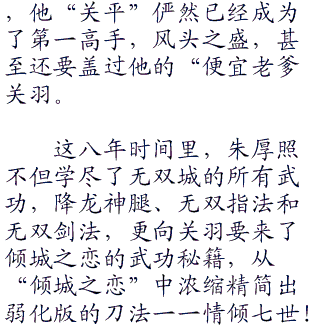 ，他“关平”俨然已经成为
了第一高手，风头之盛，甚
至还要盖过他的“便宜老爹
关羽。
这八年时间里，朱厚照
不但学尽了无双城的所有武
功，降龙神腿、无双指法和
无双剑法，更向关羽要来了
倾城之恋的武功秘籍，从
“倾城之恋”中浓缩精简出
弱化版的刀法一一情倾七世！